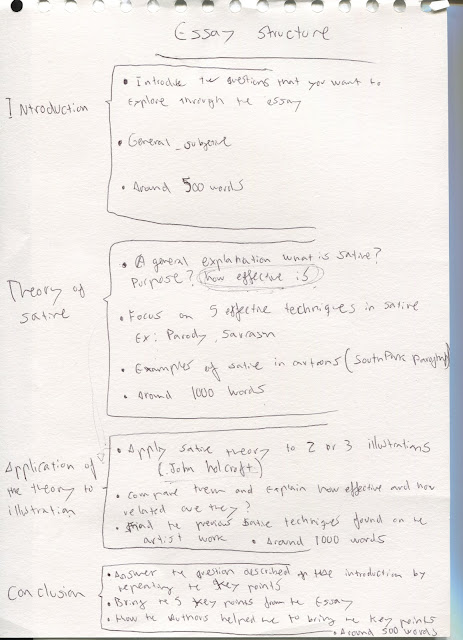 Essay Structure
Introduction
• Introduce the questions that you want to
explore through the essay
• General_subjective
• Around 500 words
Theory of
satire
• A general explanation what is satire?
Purpose? how effective is
• Focus on 5 effective techniques in satire
Ex: Parody, Sarcasm
• Examples of satire in cartoons (South Park paragraph)
• Around 1000 words
Application of
the theory to
illustration
• Apply satire theory to 2 or 3 illustrations
(John holcroft)
• compare them and explain how effective and how
related are they?
• find the previous satire techniques found on the
artist work • Around 1000 words
Conclusion
• Answer the question described the introduction by
repeating the key points
• Bring the 5 key points from the Essay
• How the Authors helped me to bring the key points
• Around 500 words